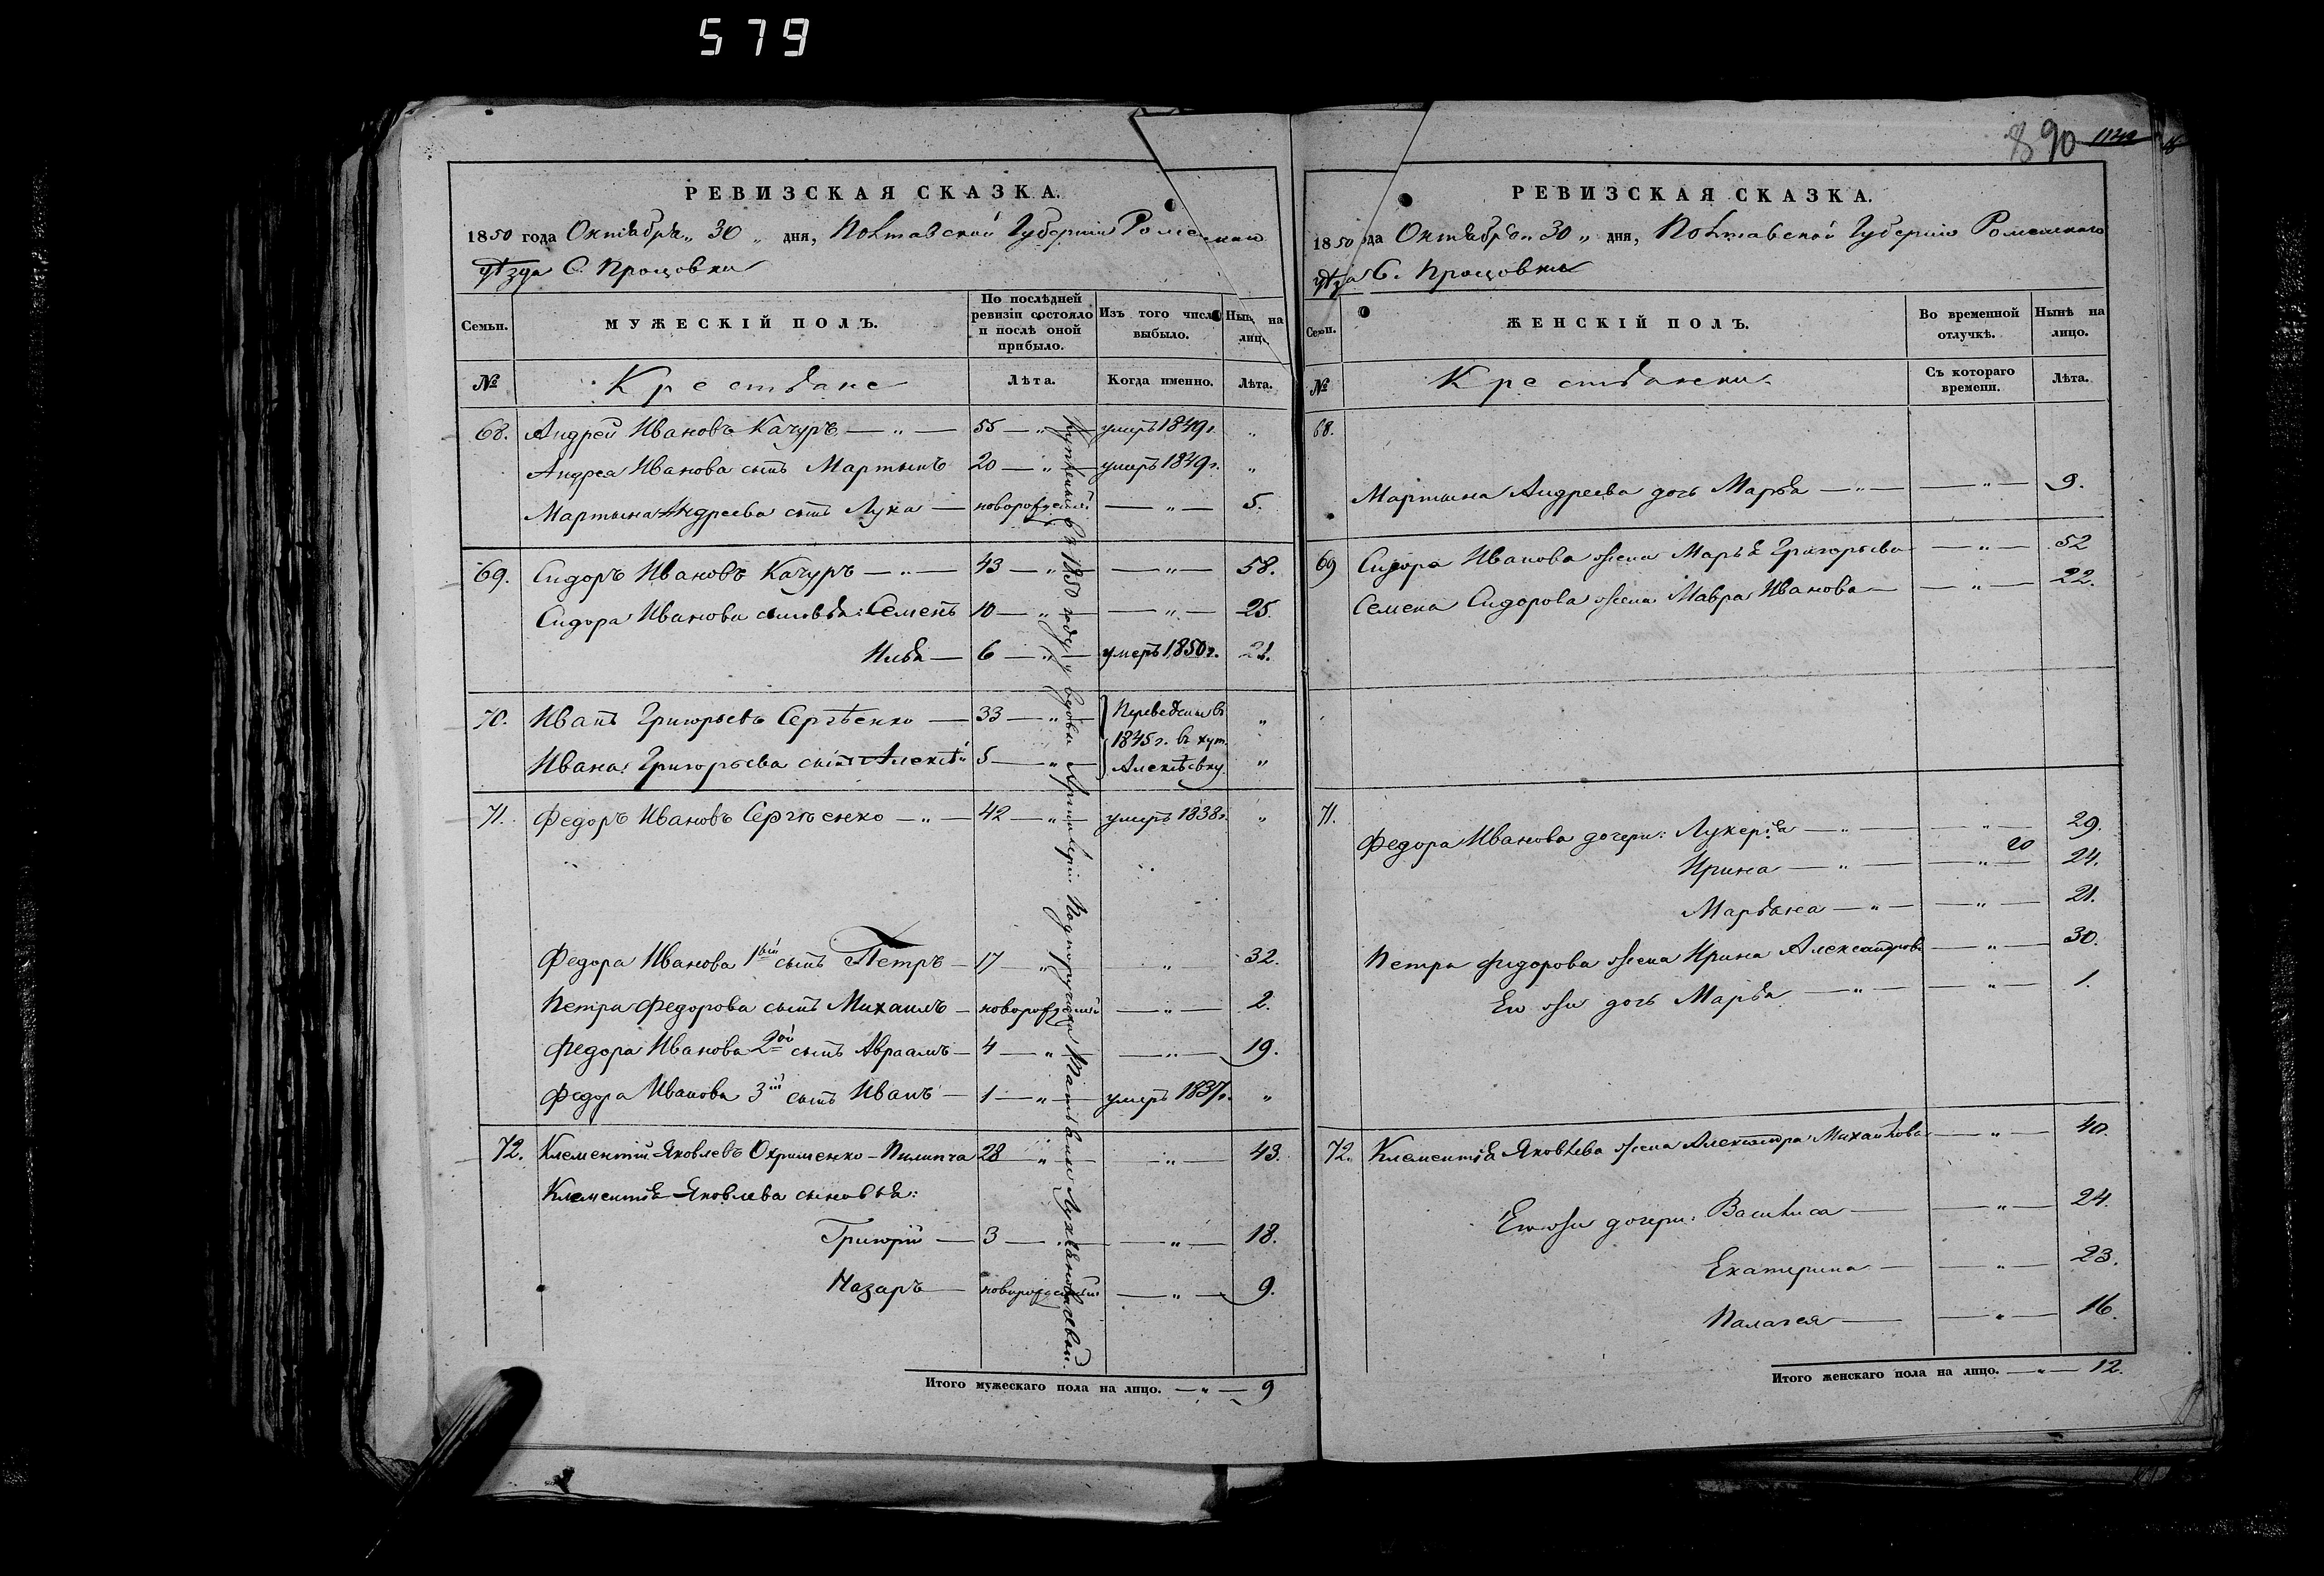 579
890
РЕВИЗСКАЯ СКАЗКА.
1850 года Октября 30 „ дня, Полтавской Губерніи Роменскаго
уѣзда С. Процовки
Семьи.
МУЖЕСКІЙ ПОЛЪ.
По послѣдней ревизіи состояло и послѣ оной прибыло.
Изъ того числа выбыло.
Нынѣ на лицо.
№
Крестьяне
Лѣта.
Когда именно.
Лѣта.
68. Андрей Ивановъ Качуръ — „ — 55 — „ — умеръ 1849 г. „
Андрея Иванова сынъ Мартынъ 20 — „ — умеръ 1849 г. „
Мартына Андреева сынъ Лука — новорожденный — „ — 5.
69. Сидоръ Ивановъ Качуръ — „ — 43 — „ — — „ — 58.
Сидора Иванова сыновья: Семенъ 10 — „ — — „ — 25.
Илья — 6 — „ — умеръ 1850 г. 21.
70. Иванъ Григорьевъ Сергѣенко — 33 — „ — Переведены въ „
1845 г. въ хут.
Ивана Григорьева сынъ Алексѣй 5 — „ — Алексѣевку „
71. Федоръ Ивановъ Сергѣенко — „ — 42 — „ — умеръ 1838 г. „
Федора Иванова 1ый сынъ Петръ — 17 — „ — „ — 32.
Петра Федорова сынъ Михаилъ — новорожденный — „ — 2.
Федора Иванова 2ой сынъ Авраамъ — 4 — „ — — „ — 19.
Федора Иванова 3ій сынъ Иванъ — 1 — „ — умеръ 1837 г. „
72. Клементій Яковлевъ Охрименко-Пилипча 28 — „ — — „ — 43.
Клементія Яковлева сыновья:
Григорій — 3 — „ — — „ — 18.
Назаръ — новорожденный — „ — 9.
Итого мужескаго пола на лицо. — „ — 9
Купленный въ 1850 году у вдовы Артиллеріи Подпоручика
РЕВИЗСКАЯ СКАЗКА.
1850 года Октября 30 „ дня, Полтавской Губерніи Роменскаго
уѣзда С. Процовки
Семьи.
ЖЕНСКІЙ ПОЛЪ.
Во временной отлучкѣ.
Нынѣ на лицо.
№
Крестьянки.
Съ котораго времени.
Лѣта.
68.
Мартына Андреева дочь Марья — „ — — „ — 9.
69 Сидора Иванова жена Марья Григорьева — „ — 52
Семена Сидорова жена Мавра Иванова — — „ — 22.
71.
Федора Иванова дочери: Лукерія — „ — — „ — 29.
20
Ирина — „ — — „ — 24.
Марьяна — „ — — „ — 21.
Петра Федорова жена Ирина Александрова — „ — 30.
Его же дочь Марья — „ — — „ — 1.
72. Клементія Яковлева жена Александра Михайлова — „ — 40.
Его же дочери: Василиса — — „ — 24.
Екатерина — — „ — 23.
Палагея — — „ — 16.
Итого женскаго пола на лицо. — „ — 12.